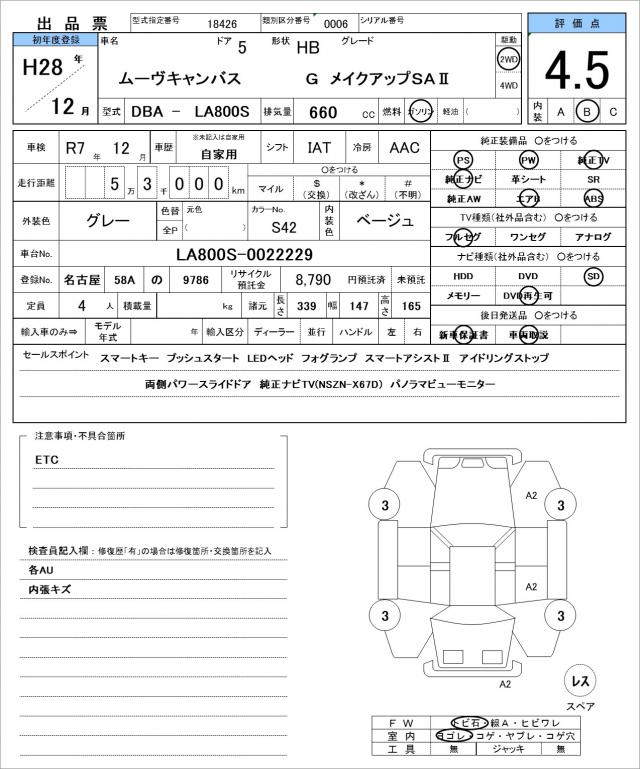 出品票 型式指定番号 18426 類別区分番号 0006 シリアル番号
評価点
初年度登録 車名 ドア 5 形状 HB グレード 駆動
H28 年 ムーヴキャンバス G メイクアップSAⅡ 2WD 4WD
4.5
12 月 型式 DBA － LA800S 排気量 660 cc 燃料 ガソリン 軽油 ( )
内装 A B C
車検 R7 年 12 月 車歴 ※未記入は自家用 自家用 シフト IAT 冷房 AAC
走行距離 5 万 3 千 0 0 0 km 〇をつける
マイル $ (交換) * (改ざん) # (不明)
外装色 グレー 色替 全P 元色 ( ) カラーNo. S42 内装色 ベージュ
車台No. LA800S-0022229
登録No. 名古屋 58A の 9786 リサイクル預託金 8,790 円預託済 未預託
定員 4 人 積載量 kg 諸元 長さ 339 幅 147 高さ 165
輸入車のみ⇒ モデル年式 年 輸入区分 ディーラー 並行 ハンドル 左 右
純正装備品 〇をつける
PS PW 純正TV
純正ナビ 革シート SR
純正AW エアB ABS
TV種類(社外品含む) 〇をつける
フルセグ ワンセグ アナログ
ナビ種類(社外品含む) 〇をつける
HDD DVD SD
メモリー DVD再生可
後日発送品 〇をつける
新車保証書 車両取説
セールスポイント スマートキー プッシュスタート LEDヘッド フォグランプ スマートアシストⅡ アイドリングストップ
両側パワースライドドア 純正ナビTV(NSZN-X67D) パノラマビューモニター
注意事項・不具合箇所
ETC
検査員記入欄：修復歴「有」の場合は修復箇所・交換箇所を記入
各AU
内張キズ
A2
3 3
A2
3 3
A2
レス
スペア
FW トビ石・線A・ヒビワレ
室内 ヨゴレ・コゲ・ヤブレ・コゲ穴
工具 無 ジャッキ 無